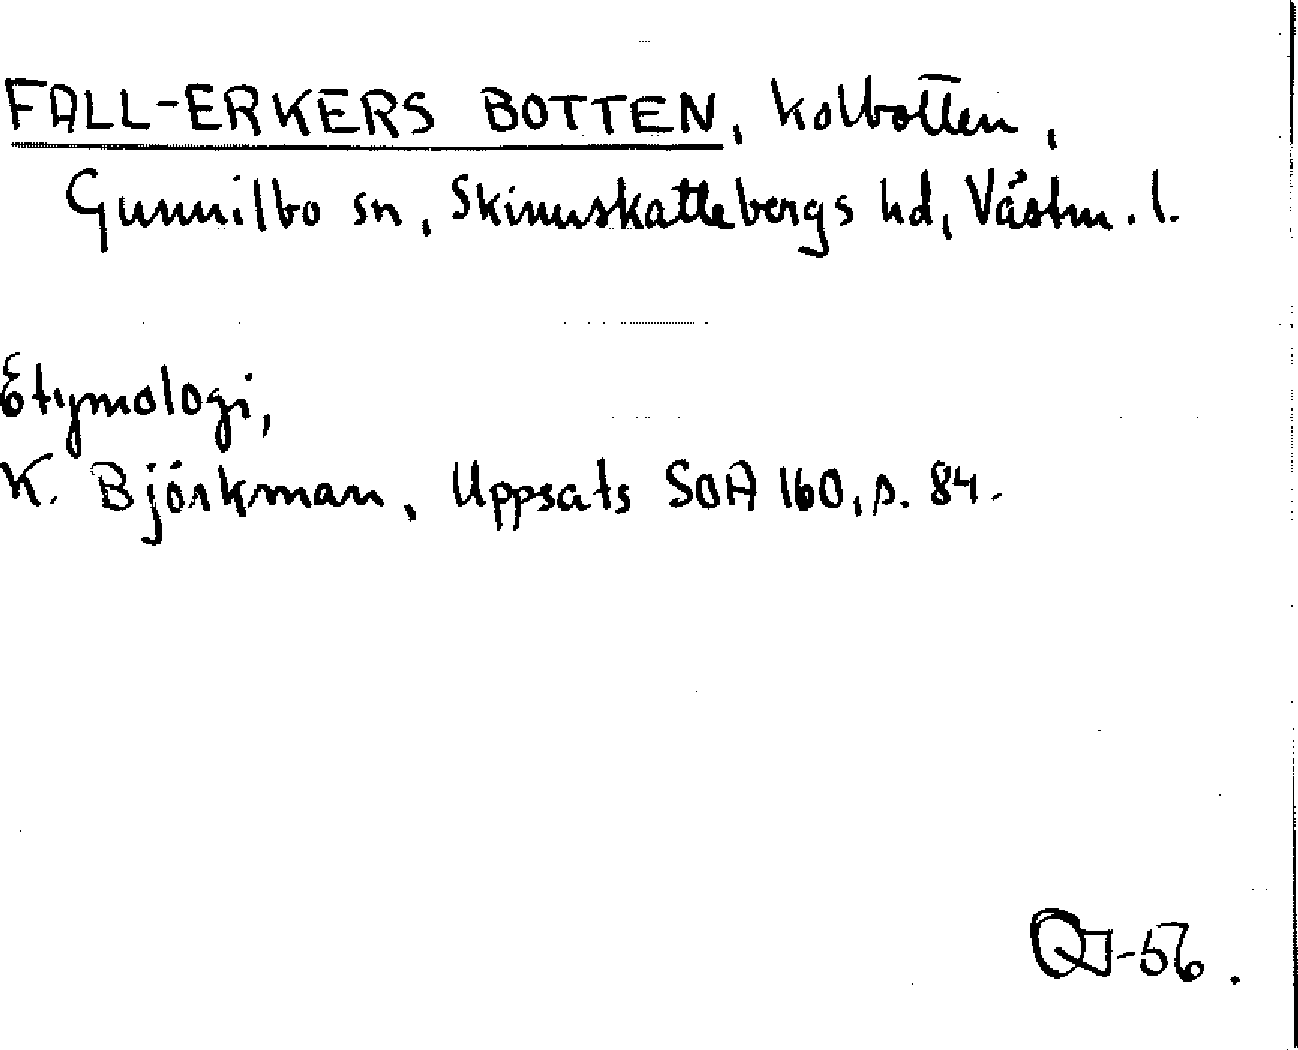 FALL-ERKERS BOTTEN, kolbotten,
Gunnilbo sn, Skinnskattebergs hd, Västm. l.
Etymologi,
K. Björkman, Uppsats SOA 160, s. 84.
-56.